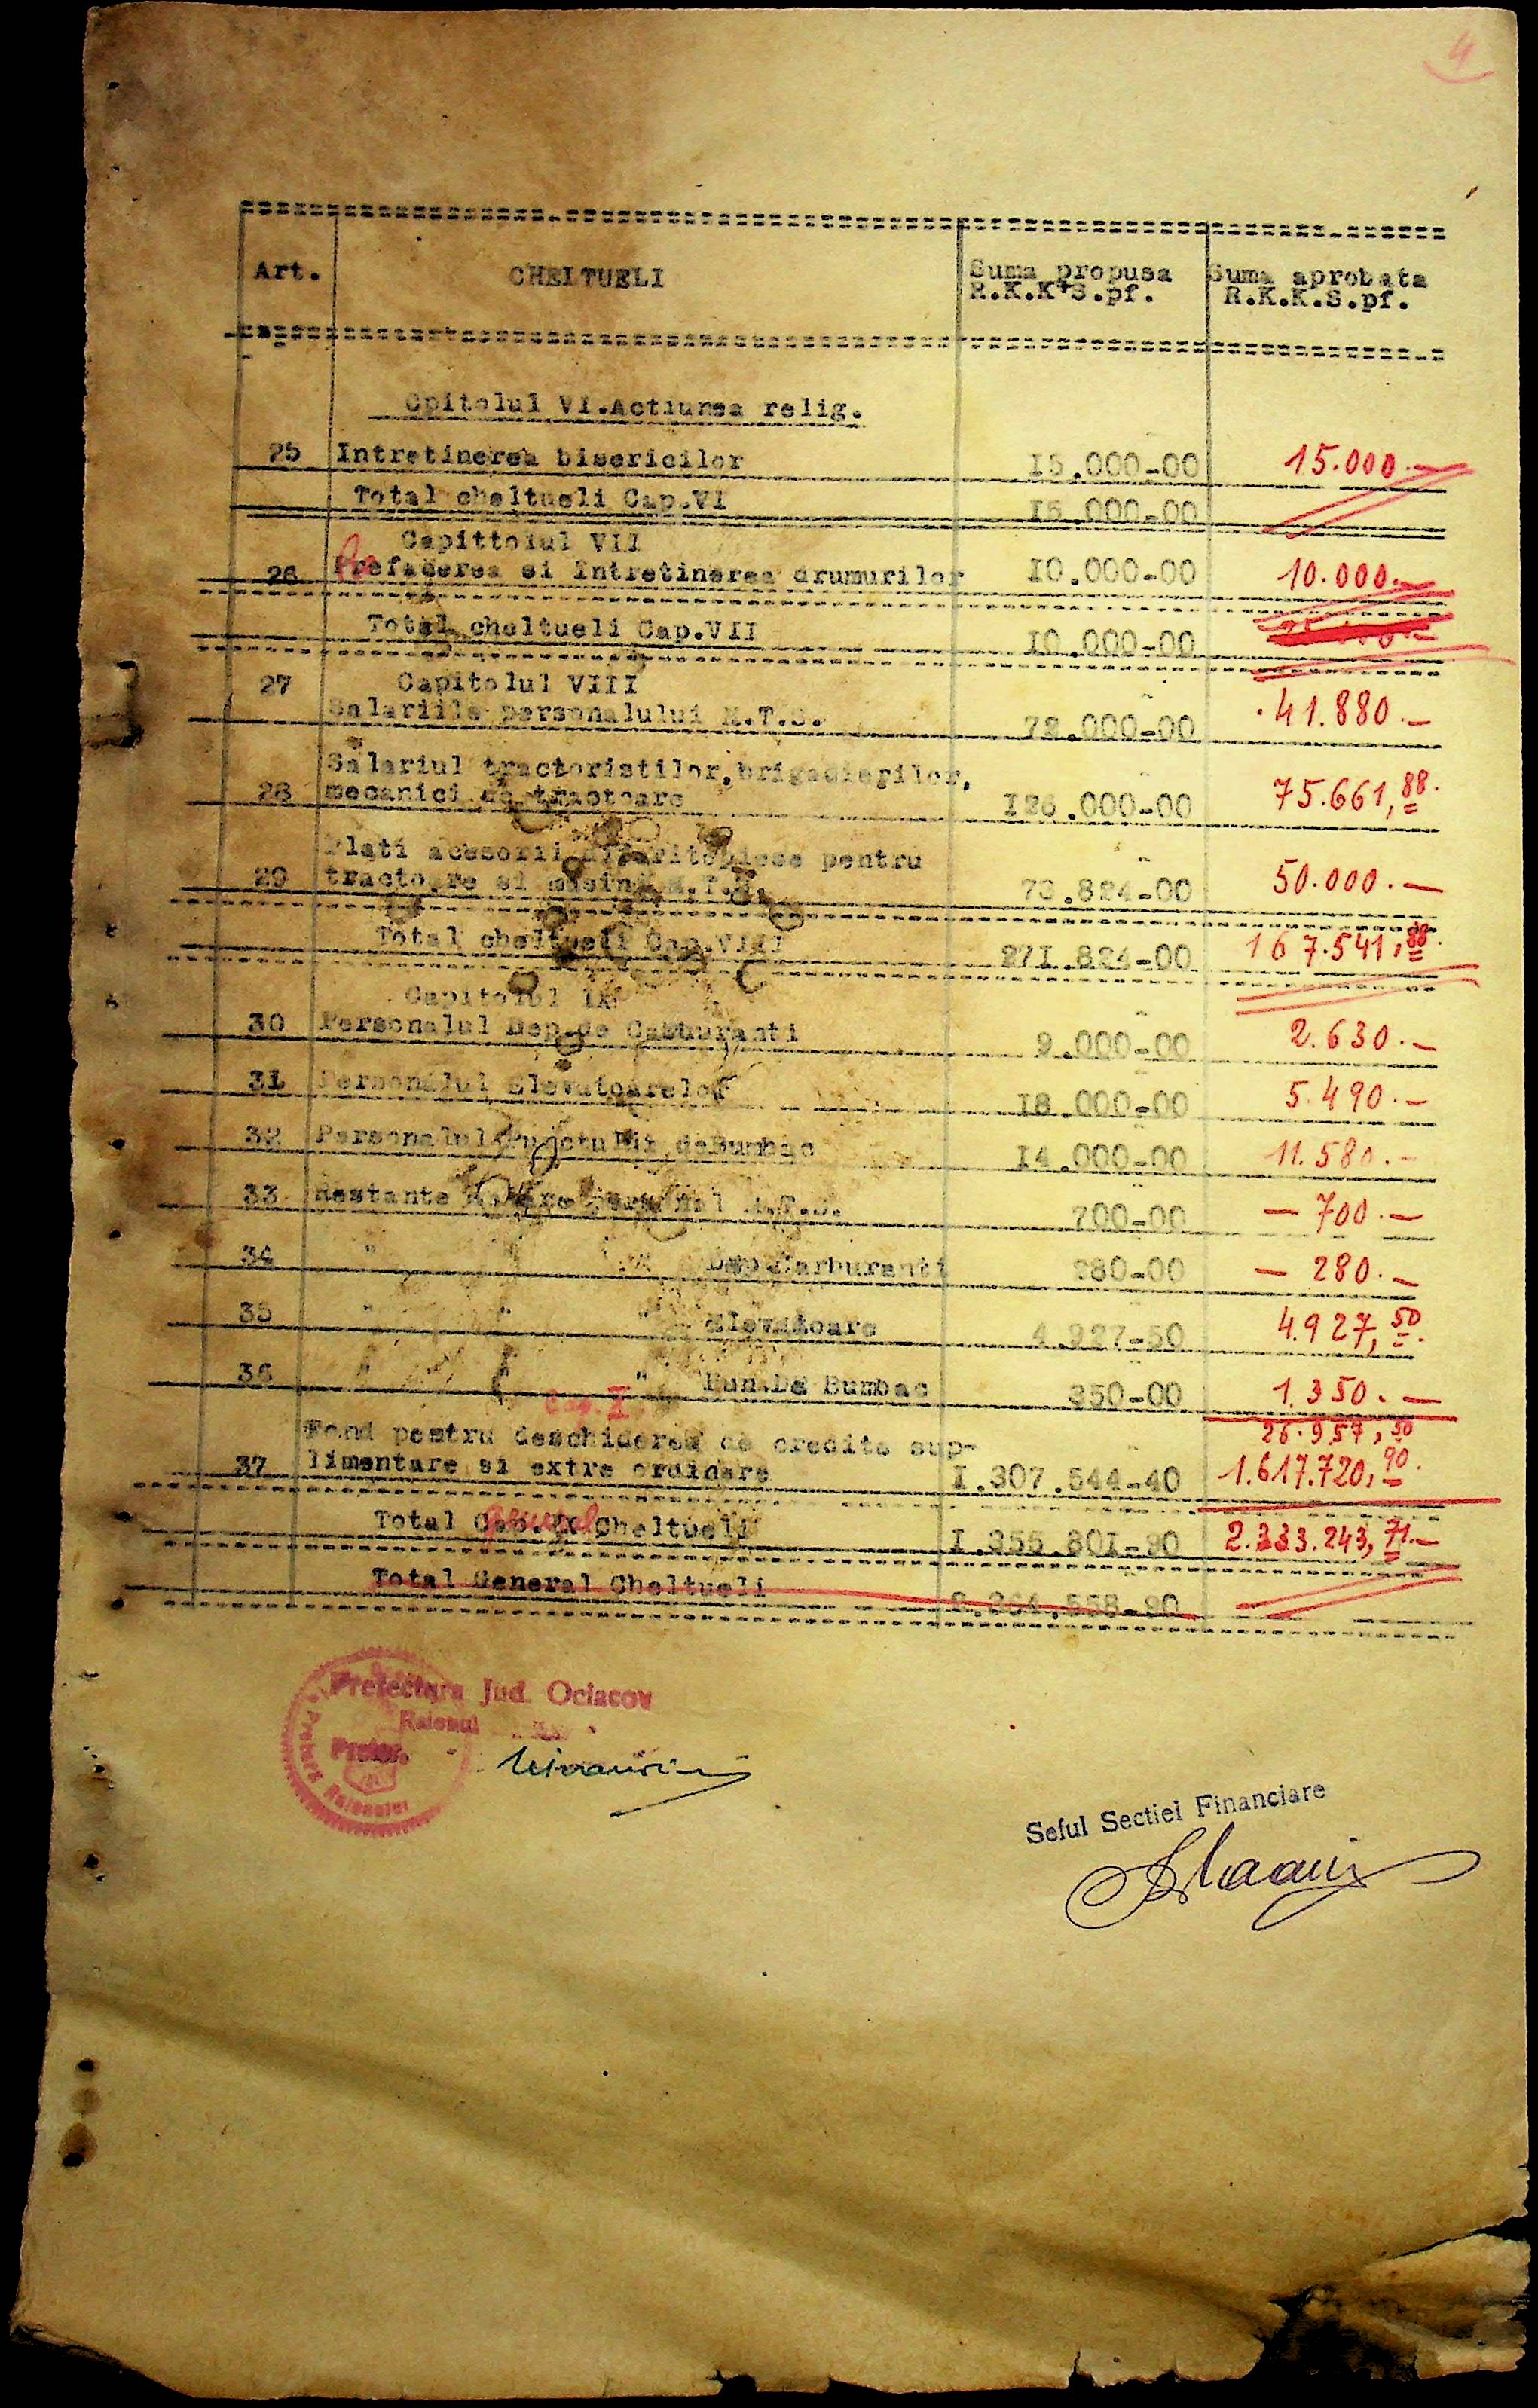 4
Art. CHELTUELI Suma propusa Suma aprobata
R.K.K+S.pf. R.K.K.S.pf.
Cpitolul VI.Actiunea relig.
25 Intretinerea bisericilor 15.000-00 15.000.—
Total cheltueli Cap.VI 15.000-00
Capittolul VII
26 Prefacerea si Intretinerea drumurilor 10.000-00 10.000.—
Total cheltueli Cap.VII 10.000-00
27 Capitolul VIII
Salariile personalului M.T.S. 72.000-00 41.880.—
Salariul tractoristilor,brigadierilor,
28 mecanici de tractoare 126.000-00 75.661,88.
Plati acesorii pentru
29 tractoare si masini M.T.S. 73.824-00 50.000.—
Total cheltueli Cap.VIII 271.824-00 167.541,88.
Capitolul IX
30 Personalul Dep.de Carburanti 9.000-00 2.630.—
31 Personalul Elevatoarelor 18.000-00 5.490.—
32 Personalul Punctului deBumbac 14.000-00 11.580.—
33 Restante M.T.S. 700-00 — 700.—
34 " " " Dep.Carburanti 280-00 — 280.—
35 " " " Elevatoare 4.927-50 4.927,50.
36 " Pun.De Bumbac 350-00 1.350.—
Cap. X 26.957,50
Fond pentru deschiderea de credite sup-
37 limentare si extre ordinare 1.307.544-40 1.617.720,90.
Total Cap.IX Cheltueli General 1.355.801-90 2.333.243,71.—
Total General Cheltueli
Prefectura Jud. Ociacov
Raionul
Pretor.
Pretura Raionului
Seful Sectiei Financiare